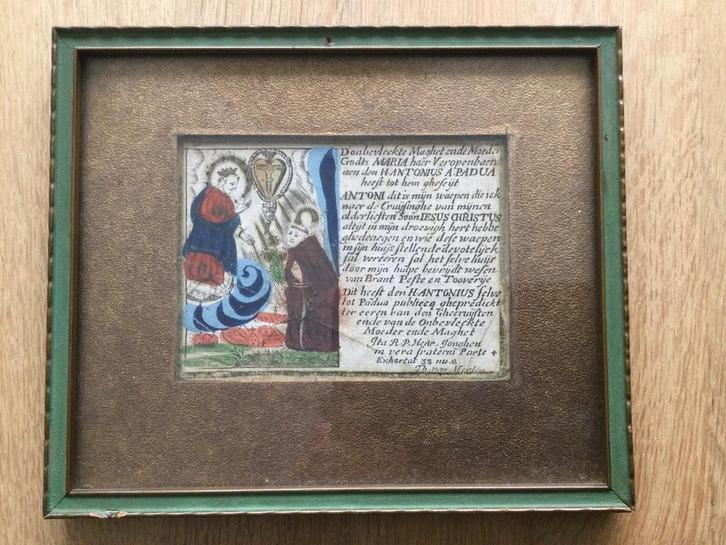 Donbevleckte Maghet ende Moeder
Godts MARIA haer Veropenbaer
aen den H ANTONIUS A PADUA
heeft tot hem gheseyt
ANTONI dit is mijn waepen die ick
naer de Cruijsinghe van mijnen
alderliefsten Soon IESUS CHRISTUS
altijt in mijn droevigh hert hebbe
ghedraegen en wie dese waepen
in sijn huijs stellende devotelijck
sal vereeren sal het selve huijs
door mijn hulpe bevrijdt wesen
van Brant Peste en Tooverije
Dit heeft den H ANTONIUS selve
tot Padua publiecq ghepredickt
ter eeren van den Ghecruijsten
ende van de Onbevleckte
Moeder ende Maghet
Ita R. P. Henr. Jonghen
in vera fraterni Parte 4
Exhortat 33 nu. 2.
Th. van